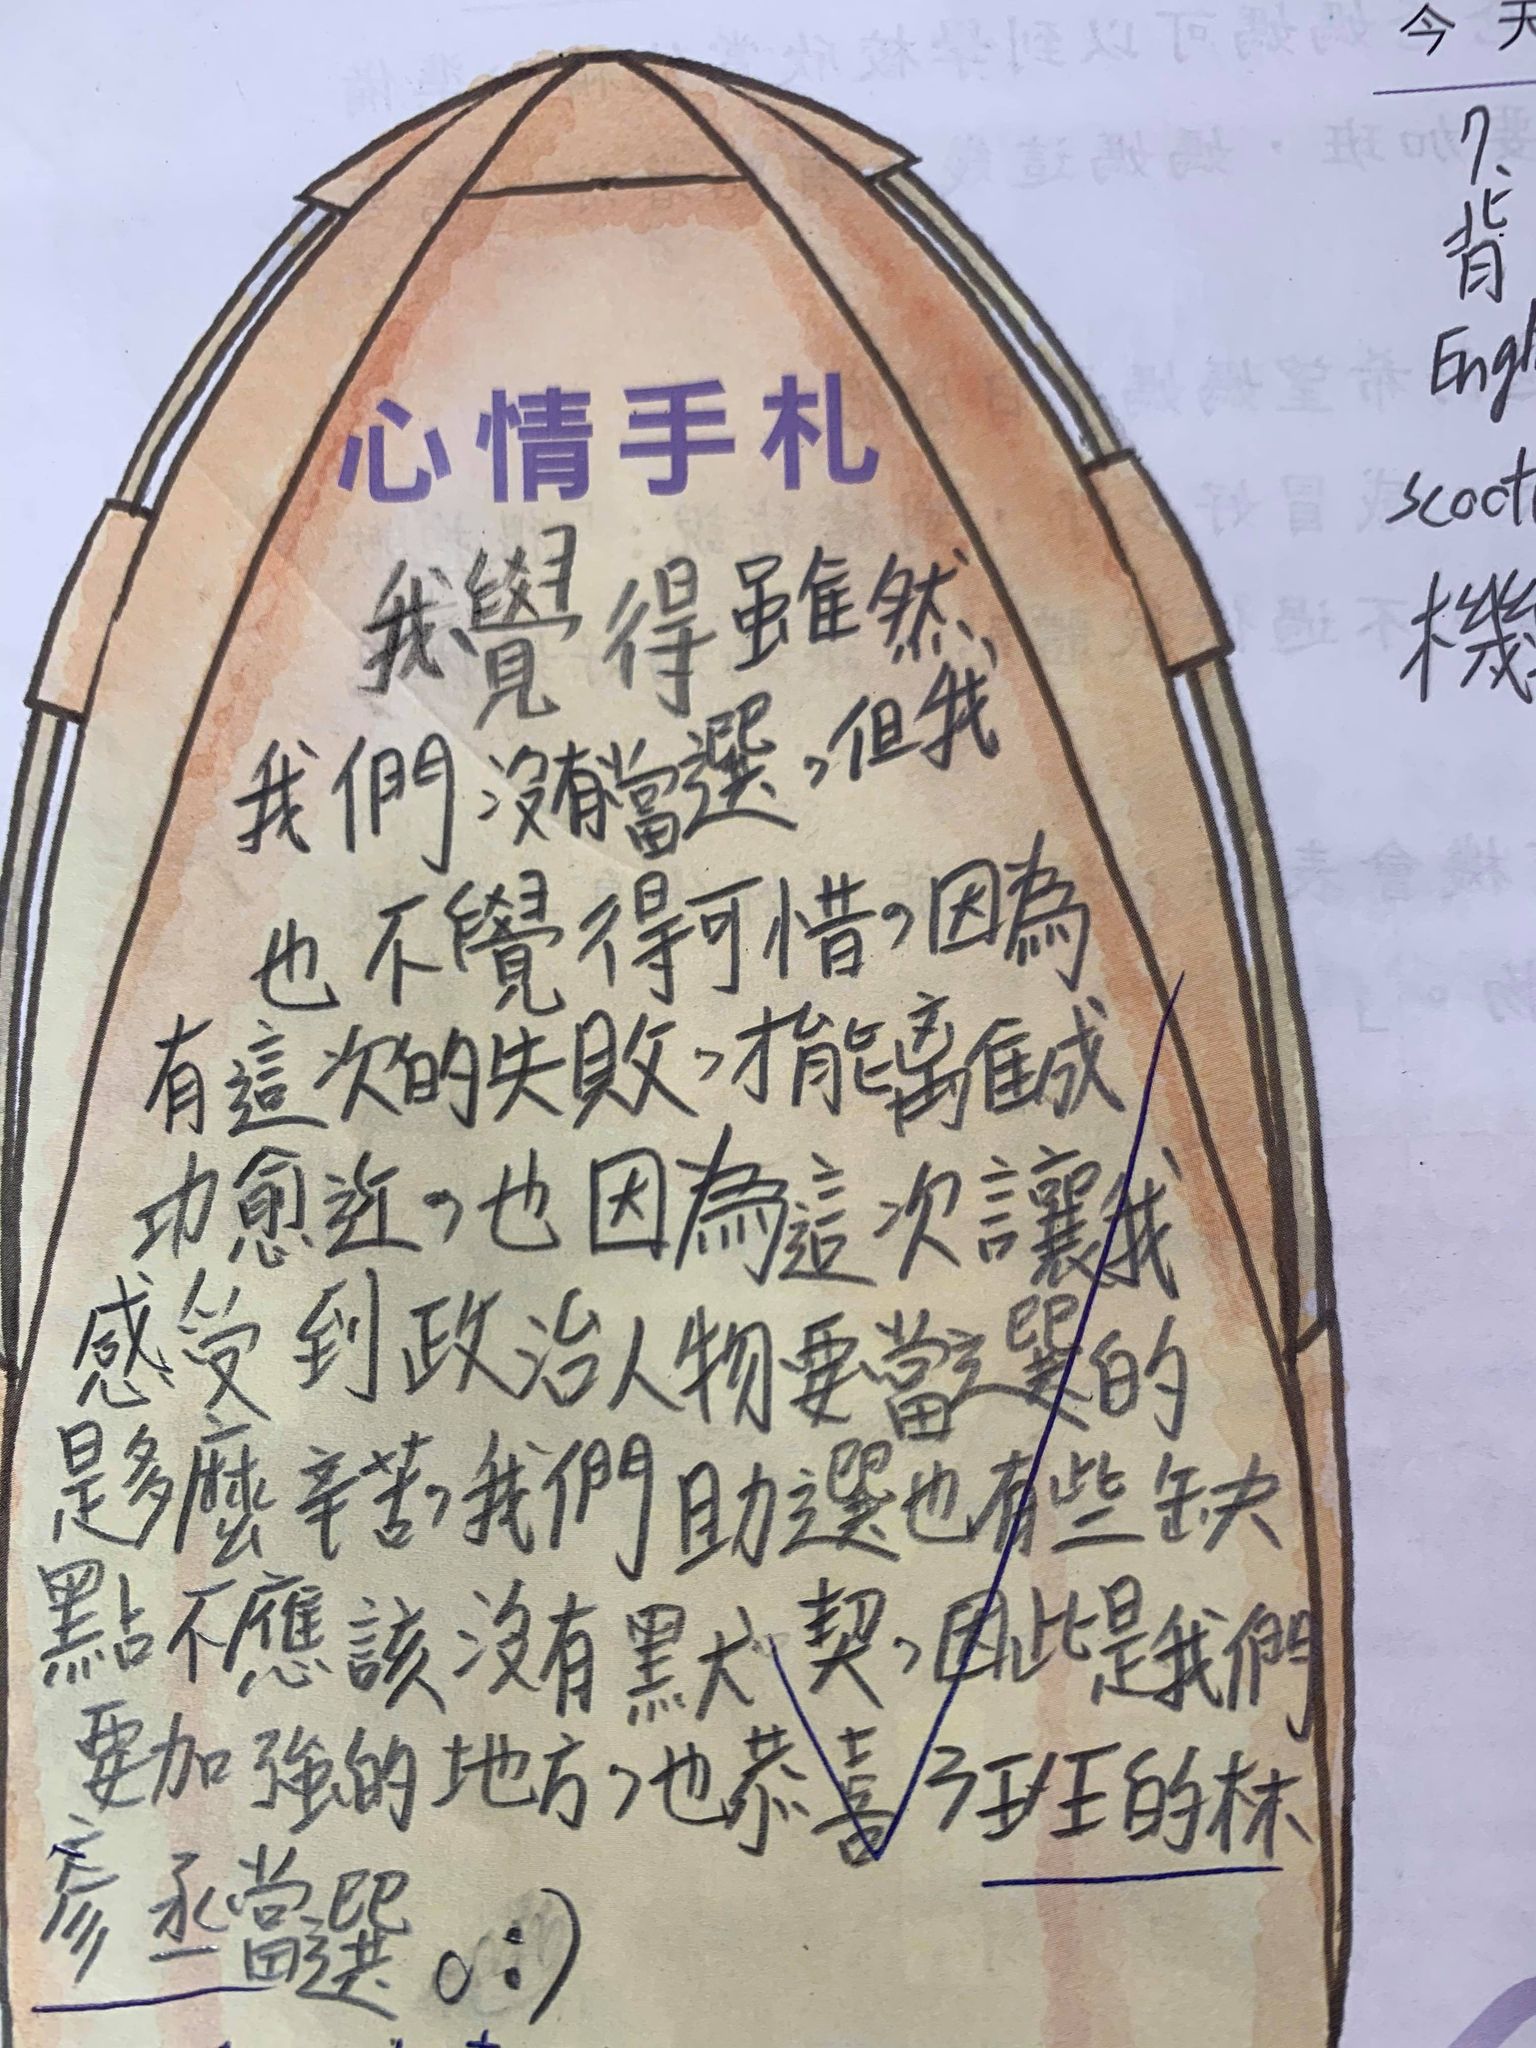 心情手札
我覺得雖然
我們沒有當選,但我
也不覺得可惜,因為
有這次的失敗,才能離成
功愈近,也因為這次讓我
感受到政治人物要當選的
是多麼辛苦,我們助選也有些缺
點不應該沒有默契,因此是我們
要加強的地方,也恭喜3班的林
彥丞當選。:)
今天
7、
背
Engl
scoot
機